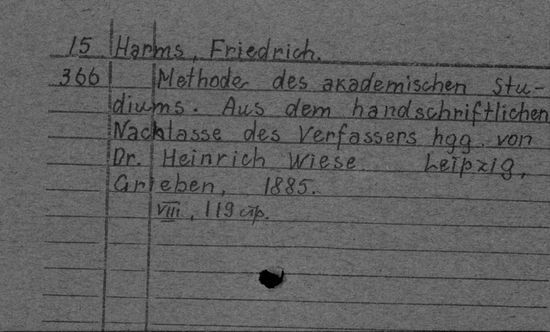 15 Harms, Friedrich.
366 Methode des akademischen Stu-
diums. Aus dem handschriftlichen
Nachlasse des Verfassers hgg. von
Dr. Heinrich Wiese Leipzig,
Grieben, 1885.
VIII, 119 стр.